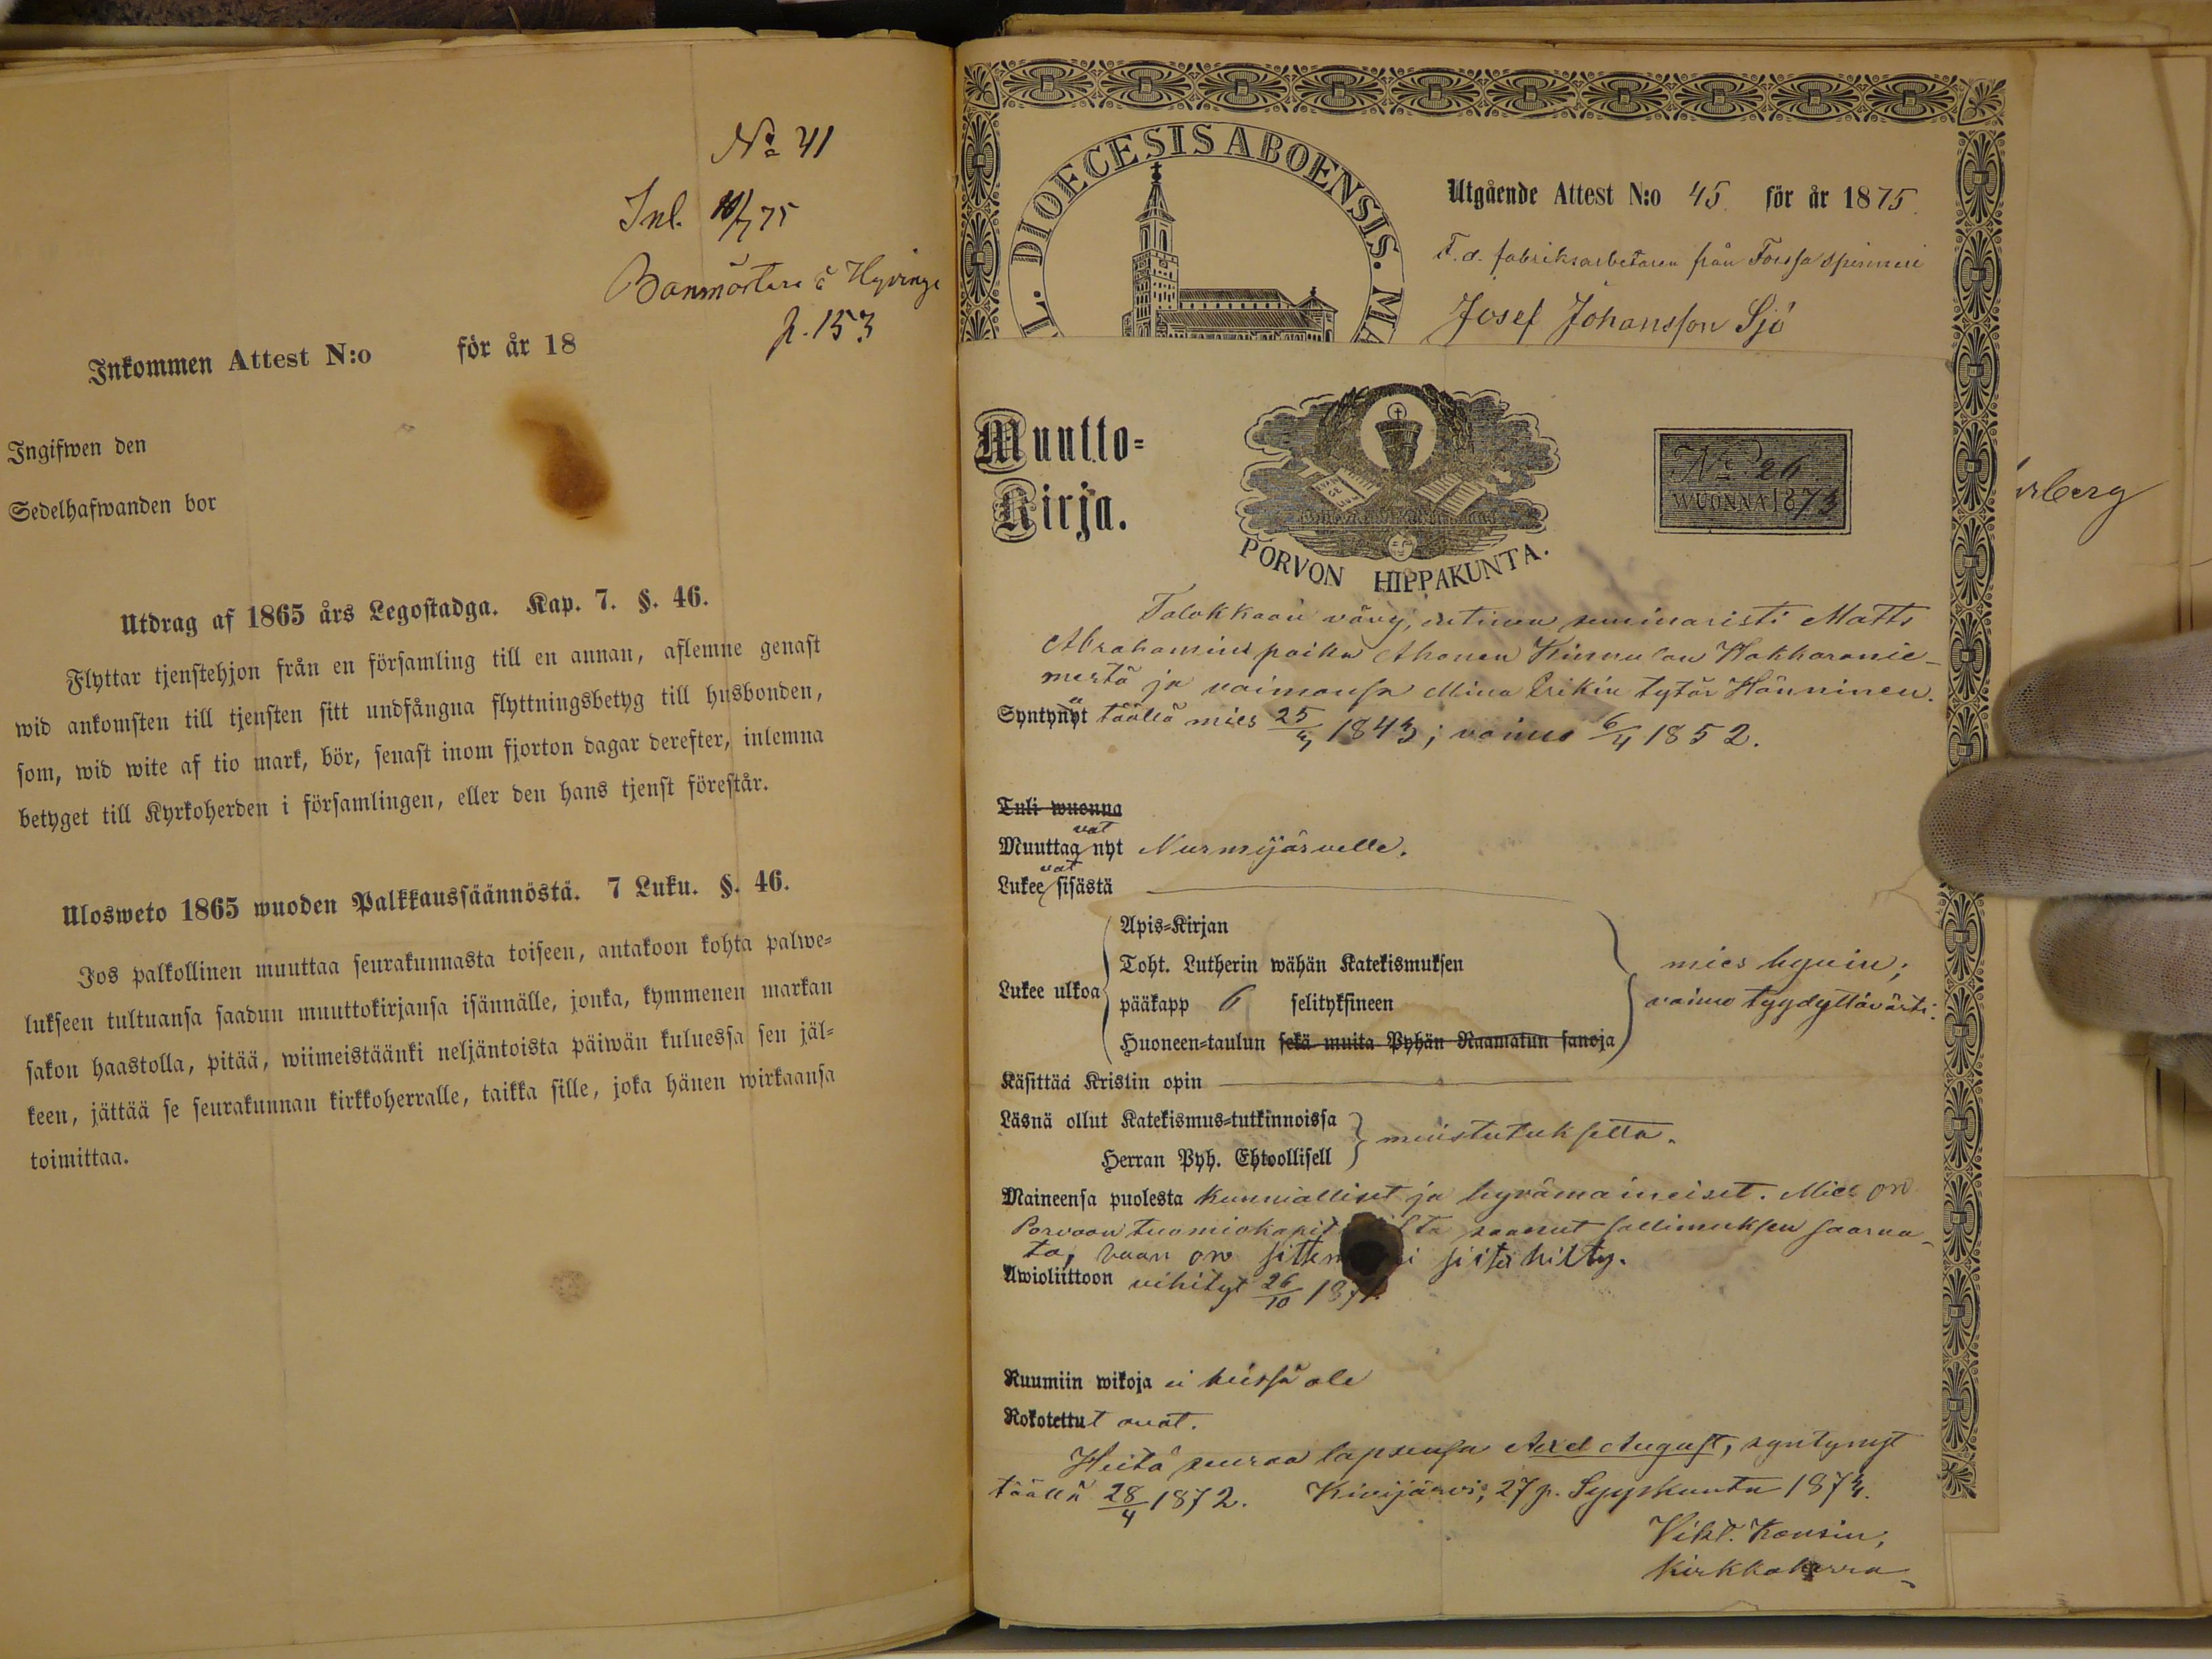 No 41
Inl. 10/7 75
Banmästare å Hyvinge
p. 153
Inkommen Attest N:o för år 18
Ingifwen den
Sedelhafwanden bor
Utdrag af 1865 års Legostadga. Kap. 7. §. 46.
Flyttar tjenstehjon från en församling till en annan, aflemne genast
wid ankomsten till tjensten sitt undfångna flyttningsbetyg till husbonden,
som, wid wite af tio mark, bör, senast inom fjorton dagar derefter, inlemna
betyget till Kyrkoherden i församlingen, eller den hans tjenst förestår.
Ulosweto 1865 wuoden Palkkaussäännöstä. 7 Luku. §. 46.
Jos palkollinen muuttaa seurakunnasta toiseen, antakoon kohta palwe=
lukseen tultuansa saadun muuttokirjansa isännälle, jonka, kymmenen markan
sakon haastolla, pitää, wiimeistäänki neljäntoista päiwän kuluessa sen jäl=
keen, jättää se seurakunnan kirkkoherralle, taikka sille, joka hänen wirkaansa
toimittaa.
L. DIOECESIS ABOENSIS. MA
Utgående Attest N:o 45 för år 1875.
F. d. fabriksarbetaren från Forssa spinneri
Josef Johansson Sjö
Muutto=
Kirja.
EVAN
GE
LIUM
PORVON HIPPAKUNTA.
No 26
WUONNA 1873
rberg
Talokkaan vävy, entinen seminaristi Matts
Abrahamins poika Ahonen Kinnulan Hakkaranie-
mestä ja vaimonsa Mina Erikin tytär Hänninen.
Syntynyt täällä mies 25/4 1843; vaimo 6/4 1852.
Tuli wuonna
Muuttaa vat nyt Nurmijärvelle.
Lukee vat sisästä
Apis=Kirjan
Toht. Lutherin wähän Katekismuksen
Lukee ulkoa
pääkapp 6 selityksineen
Huoneen=taulun sekä muita Pyhän Raamatun sanoja
mies hyvin;
vaimo tyydyttävästi.
Käsittää Kristin opin
Läsnä ollut Katekismus=tutkinnoissa
Herran Pyh. Ehtoollisell
muistutuksetta.
Maineensa puolesta kunnialliset ja hyvämaineiset. Mies on
Porvoon tuomiokapit lta saanut sallimuksen saarna-
ta, vaan on sittem i siitä hilty.
Awioliittoon vihityt 26/10 1871.
Ruumiin wikoja ei heissä ole
Rokotettut ovat.
Heitä seuraa lapsensa Axel August, syntynyt
täällä 28/4 1872. Kivijärvi, 27 p. Syyskuuta 1873.
Vikt. Konsin,
Kirkkoherra